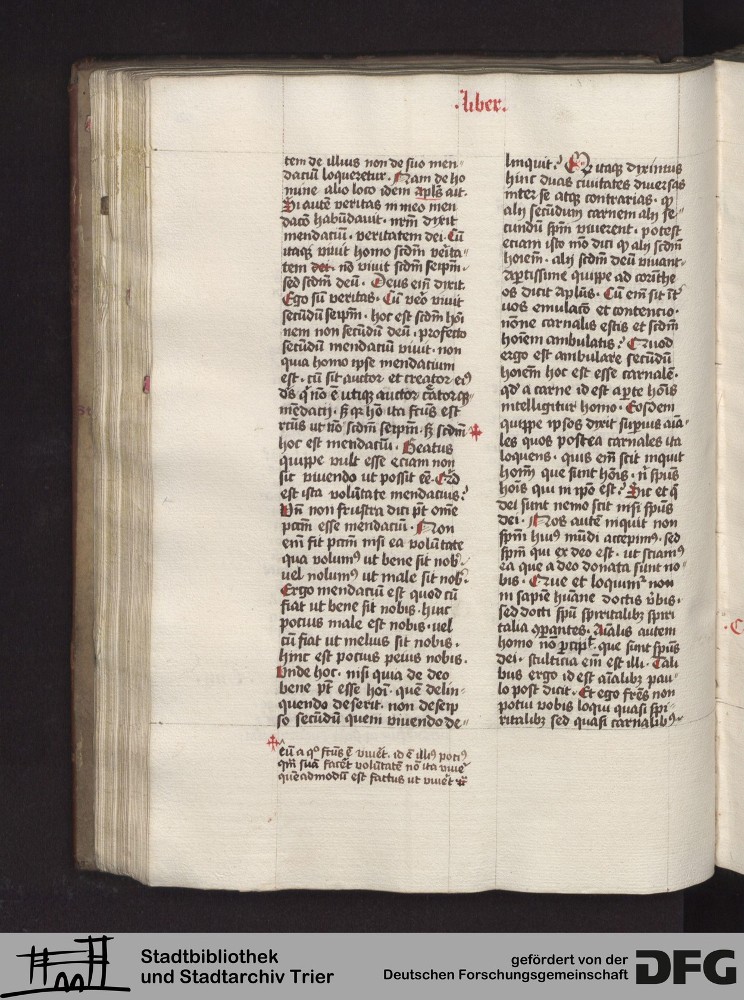 ·liber·
tem de illius non de suo men⸗
daciū loqueretur. Nam de ho
mine alio loco idem apl̄s ait.
Si autē veritas in meo men
dacō habūdauit · nr̄m dixit
mendaciū · veritatem dei · Cū
itaqʒ viuit homo scdm̄ verita⸗
tem dei · nō viuit scdm̄ seip̄m ·
sed scdm̄ deū · Deus em̄ dixit.
Ego sū veritas · Cū vero viuit
secūdū seip̄m · hoc est scdm̄ hōi
nem non secūdū deū · profecto
secūdū mendaciū viuit · non
quia homo ipse mendacium
est · cū sit auctor et creator eiꝰ
dꝰs qͥ nō ē utiqʒ auctor c̄atorqʒ
mēdacij · sʒ qʒ hō ita fc̄us est
rc̄us ut nō scdm̄ seip̄m · sʒ scdm̄
hoc est mendaciū · Beatus
quippe vult esse eciam non
sic viuendo ut possit eē · Qͥd
est ista volūtate mendacius?
Vn̄ non frustra dici pt̄ om̄e
pcc̄m esse mendaciū · Non
em̄ fit pcc̄m nisi ea volūtate
qua volumꝰ ut bene sit nobꝭ
vel nolumꝰ ut male sit nobꝭ
Ergo mendaciū est quod cū
fiat ut bene sit nobis · hinc
pocius male est nobis · vel
cū fiat ut melius sit nobis ·
hinc est pocius peius nobis.
Vnde hoc · nisi quia de deo
bene pt̄ esse hoī · quē delin⸗
quendo deserit · non de seip̄
so secūdū quem viuendo de⸗
eū a qͦ fc̄us ē viuēt · id ē illiꝰ potiꝰ
qm̄ suā facēt volūtatē nō ita viuēꝰ
quēadmodū est factus ut viuēt
linquit? Qꝫ itaqʒ diximus
hinc duas ciuitates diuersas
inter se atqʒ contrarias · qꝫ
alij secūdum carnem alij se⸗
cundū sp̄m viuerent · potest
eciam isto mō dici qꝫ alij scdm̄
hoīem · alij scdm̄ deū viuant·
Apertissime quippe ad corinthe
os dicit apl̄us · Cū em̄ sit īt̄
vos emulacō et contencio ·
nōne carnalis estis et scdm̄
hoīem ambulatis? Quod
ergo est ambulare secūdū
hoīem hoc est esse carnalē ·
qd̄ a carne id est a pte hōis
intelligitur homo · Eosdem
quippe ipsos dixit supius aīa⸗
les quos postea carnales ita
loquens · quis em̄ scit inquit
hoīm que sunt hōis · nͥ sp̄us
hōis qui in ip̄o est? Sic et q̄
dei sunt nemo scit nisi sp̄us
dei · Nos autē inquit non
sp̄m huiꝰ mūdi accepimꝰ · sed
sp̄m qui ex deo est · ut sciamꝰ
ea que a deo donata sunt no⸗
bis · Que et loquimͬ non
in sapiē hūane doctis v̄bis ·
sed docti sp̄u spiritalibʒ spiri
talia cōpantes · Aīalis autem
homo nō pcipit · que sunt sp̄us
dei · stulticia em̄ est illi · Tali
bus ergo id est aīalibʒ pau⸗
lo post dicit · Et ego fr̄es non
potui vobis loqui quasi spi⸗
ritalibʒ sed quasi carnalibꝰ
Stadtbibliothek
und Stadtarchiv Trier
gefördert von der
Deutschen Forschungsgemeinschaft
DFG